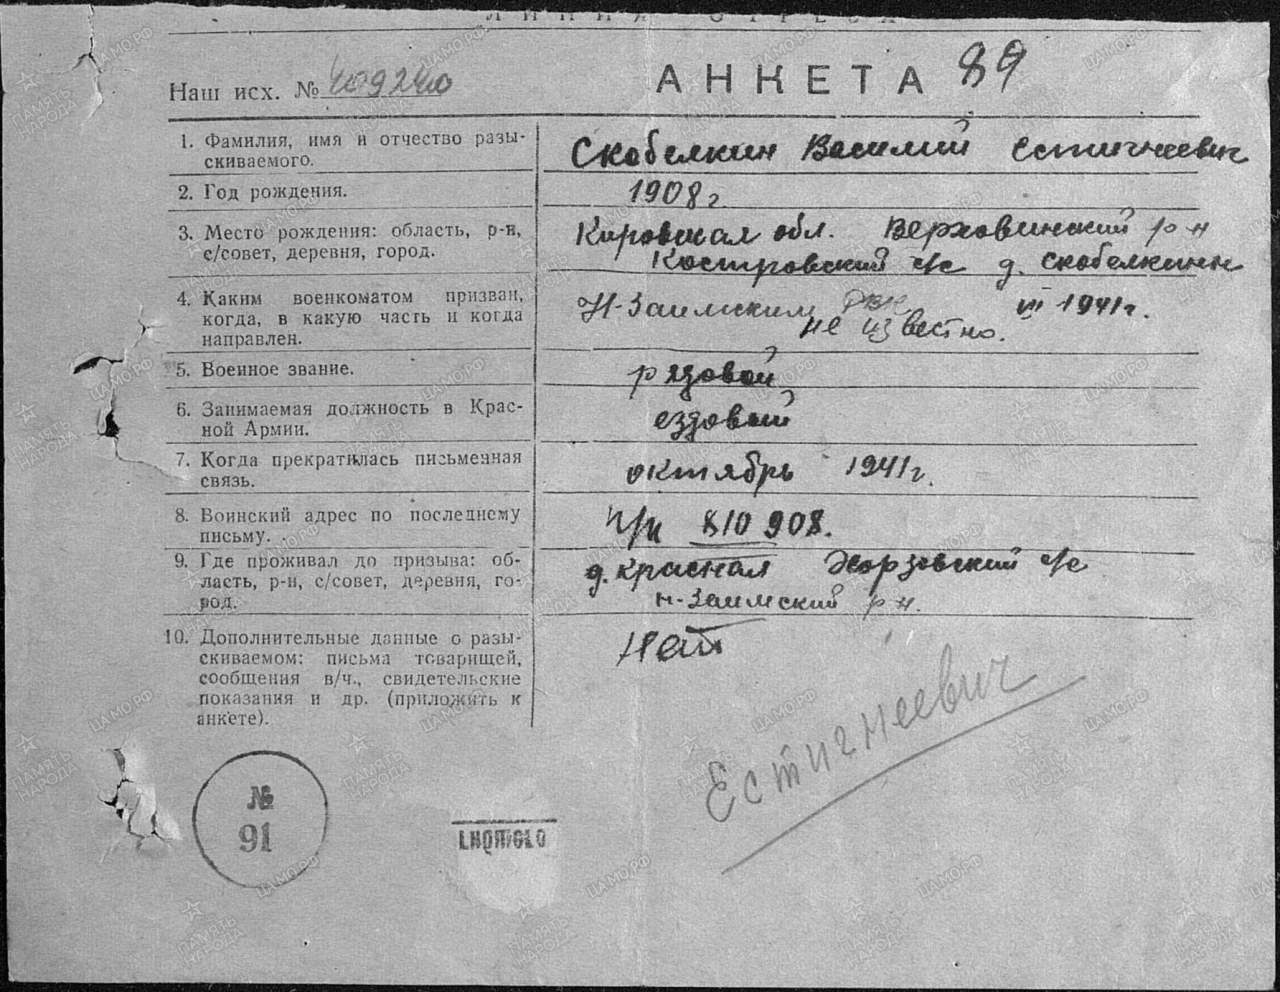 ЛИНИЯ ОТРЕЗА
Наш исх. № 409240
АНКЕТА 89
1. Фамилия, имя и отчество разы-
скиваемого.
Скобелкин Василий Естигнеевич
2. Год рождения.
1908 г
3. Место рождения: область, р-н,
с/совет, деревня, город.
Кировская обл. Верховинский р-н
Костровский с/с д. Скобелкины
4. Каким военкоматом призван,
когда, в какую часть и когда
направлен.
Н-Заимским РВК VIII 1941г.
не известно.
5. Военное звание.
рядовой
6. Занимаемая должность в Крас-
ной Армии.
ездовый
7. Когда прекратилась письменная
связь.
октябрь 1941г.
8. Воинский адрес по последнему
письму.
п/я 810 908.
9. Где проживал до призыва: об-
ласть, р-н, с/совет, деревня, го-
род.
д. Красная с/с
Н-Заимский р-н.
10. Дополнительные данные о разы-
скиваемом: письма товарищей,
сообщения в/ч., свидетельские
показания и др. (приложить к
анкете).
Нет
Естигнеевич
№
91